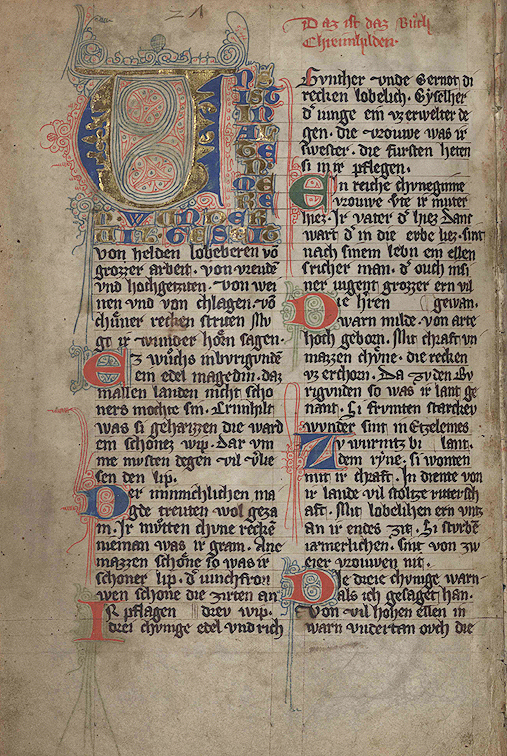 Daz ist daz Buͦch
Chreimhilden.
UNS
IST
IN AL
TEN
MERE
N WUNDER
VIL GESEIT
von helden lobeberen võ
grozzer arbeit. von vreude
vnd hochgetziten. von wei
nen vnd von chlagen. võ
chuͤner recken striten. Mv
gt ir wunder hören sagen.
Ez wuͦchs in bvrgunde
ein edel magedin. daz
in allen landen nicht scho
ners mochte sin. Crimhilt
was si geheizzen die ward
ein schönez wip. Dar vm
me mvsten degen vil v̾lie
sen den lip.
Der minnichlichen ma
gde treuten wol geza
m. Ir mvͦtten chvne reckē
nieman was ir gram. Ane
mazzen schone so was ir
schoner lip. d᾽ iunchfrow
wen schone die zirten an
Ir pflagen drev wip.
drei chvnige edel vnd rich
Gvncher vnde Gernot di
recken lobelich. Gyselher
d᾽ iunge ein vz erwelter de
gen. die vrouwe was ir
swester. die fursten heten
si in ir pflegen.
Ein reiche chvneginne
vrouwe Vte ir muter
hiez. Ir vater d᾽ hiez Danc
wart d᾽ in die erbe liez. sint
nach sinem lebn ein ellen
tricher man. d᾽ ouch in si
ner iugent grozzer ern vil
Die hren gewan.
warn milde. von arte
hoch geborn. Mit chraft vn
mazzen chvne. die recken
vz erchorn. Da zv den Bv
rigvnden so was ir lant ge
nant. Si frvmten starckev
wvnder sint in Etzelenes
Zv wurmtz bi lant.
dem ryne. si wonten
mit ir chraft. In diente von
ir lande vil stoltze rittersch
aft. Mit lobelihen ern vntz
an ir endes zit. Si sturbē
iamerlichen. sint von zw
eier vrouwen nit.
Die dreie chvnige warn
als ich gesaget han.
von vil hohen ellen in
warn vndertan ovch die